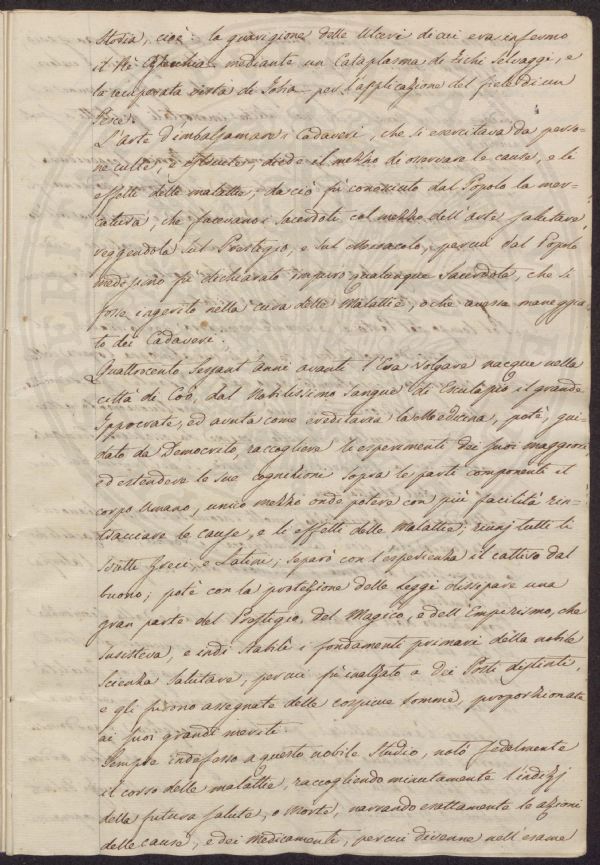 Storia, cioè: la guarigione delle Ulceri di cui era infermo
il Rè Ezecchia mediante un Cataplasma di Fichi Selvaggi, e
la recuperata vista di Tobia per l'applicazione del fiele di un
Pesce.
L'arte d'imbalsamare i Cadaveri, che si esercitava da perso-
ne culte, e diede il mezzo di osservare le cause, e li
effetti delle malattie; da ciò fù conosciuto dal Popolo la mer-
catura, che facevano i Sacerdoti col mezzo dell'arte salutare
reggendola sul Prestigio, e sul Miracolo, percui dal Popolo
medesimo fù dichiarato impuro qualunque Sacerdote, che si
fosse ingerito nella cura delle Malattie, o che avesse maneggia-
to dei Cadaveri.
Quattrocento Sessant'anni avanti l'Era Volgare nacque nella
città di Coò, dal Nobilissimo Sangue di Esculapio il grande
Ippocrate, ed avuta come ereditaria la Medicina, potè, gui-
dato da Democrito, raccogliere le esperimenti dei suoi maggiori
ed estendere le sue cognizioni sopra le parti componenti il
corpo Umano, unico mezzo onde potere con più facilità rin-
tracciare le cause, e li effetti delle Malattie; riunj tutti li
Scritti Greci, e Latini; separò con l'esperienza il cattivo dal
buono; potè con la protezione delle Leggi dissipare una
gran parte del Prestigio, del Magico, e dell'Empirismo, che
susisteva, e indi stabilì i fondamenti primarj della nobile
Scienza Salutare, percui fù inalzato a dei Posti distinti,
e gli furono assegnate delle cospicue Somme, proporzionate
ai suoi grandi meriti.
Sempre indefesso a questo nobile Studio, notò fedelmente
il corso delle malattie, raccogliendo minutamente l'indizj
della futura salute, o morte, narrando esattamente le azzioni
delle cause, e dei Medicamenti, percui divenne nell'esame